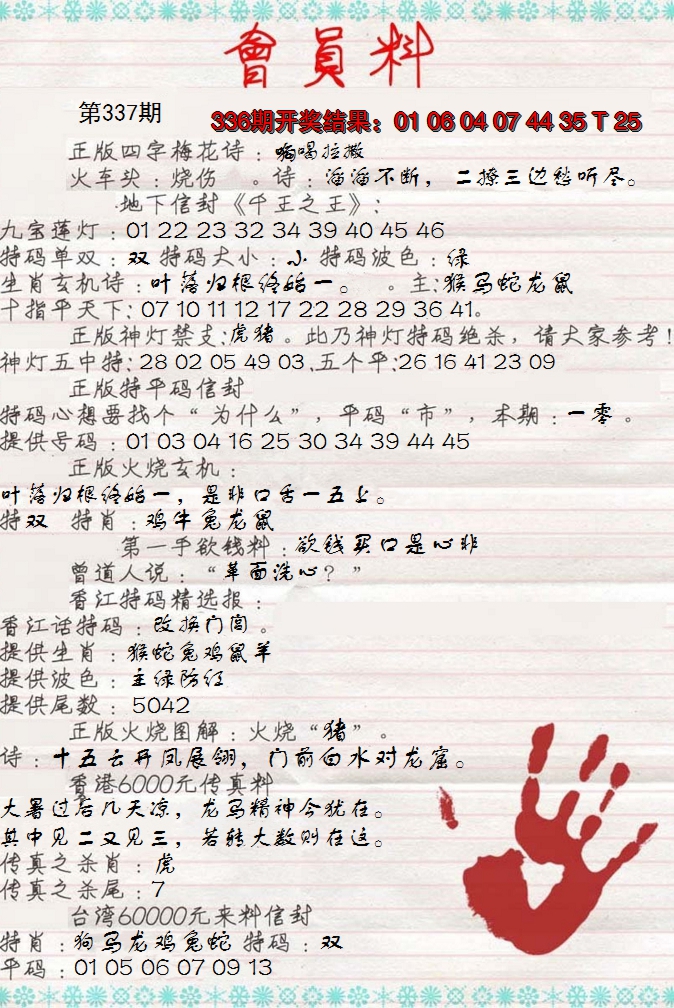 會員料
第337期
336期开奖结果：01 06 04 07 44 35 T 25
正版四字梅花诗：嗨喝拉撒
火车头：烧伤 。诗：滔滔不断，二撩三边愁听尽。
地下信封《千王之王》：
九宝莲灯：01 22 23 32 34 39 40 45 46
特码单双：双 特码大小：小 特码波色：绿
生肖玄机诗：叶落归根终始一。 。主：猴马蛇龙鼠
十指平天下：07 10 11 12 17 22 28 29 36 41。
正版神灯禁支：虎猪。此乃神灯特码绝杀，请大家参考！
神灯五中特：28 02 05 49 03.五个平：26 16 41 23 09
正版特平码信封
特码心想要找个“为什么”，平码“市”，本期：一零。
提供号码：01 03 04 16 25 30 34 39 44 45
正版火烧玄机：
叶落归根终始一，是非口舌一五上。
特双 特肖：鸡牛兔龙鼠
第一手欲钱料：欲钱买口是心非
曾道人说：“革面洗心？”
香江特码精选报：
香江话特码：改换门闾。
提供生肖：猴蛇兔鸡鼠羊
提供波色：主绿防红
提供尾数：5042
正版火烧图解：火烧“猪”。
诗：十五云开凤展翎，门前白水对龙窟。
香港6000元传真料
大暑过后几天凉，龙马精神今犹在。
其中见二又见三，若转大数则在这。
传真之杀肖：虎
传真之杀尾：7
台湾60000元来料信封
特肖：狗马龙鸡兔蛇 特码：双
平码：01 05 06 07 09 13